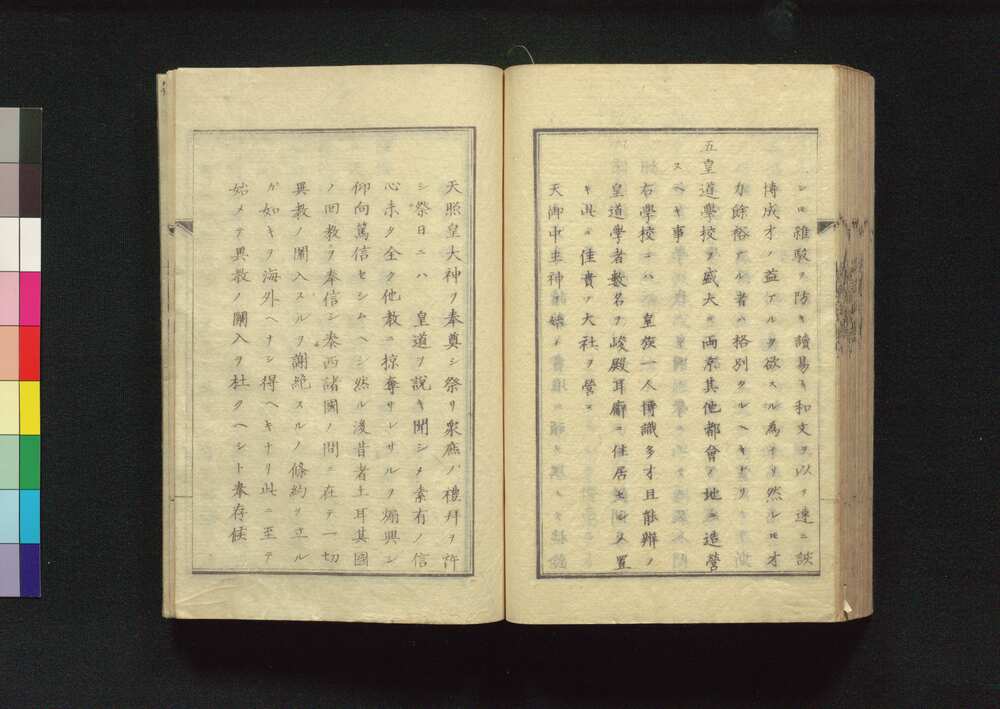 シロ雑駁ヲ防キ讀易キ和文ヲ以テ速ニ
博成才ノ益アルヲ欲スル為ナリ然レロ才
力餘裕アル者ハ格別タルヘキナリ
五皇道學校ヲ盛大ニ両京其他都會ノ地ニ造營
スヘキ事
右學校ニハ 皇族一人博識多才且能辨ノ
皇道學者數名ヲ峻殿耳廊ニ住居セシメ置
キ其ニ佳貴ノ大社ヲ營ミ
天御中主神ヲ始メ
天照皇大神ヲ奉奠シ祭リ衆庶ノ禮拜ヲ許
シ祭日ニハ 皇道ヲ説キ聞シメ素有ノ信
心未タ全ク他教ニ掠奪サレサルヲ煽興シ
仰向篤信セシムヘシ然ル後昔者土耳其國
ノ回教ヲ奉信シ泰西諸國ノ間ニ在テ一切
異教ノ闌入スルヲ謝絶スルノ條約ヲ立ル
カ如キヲ海外ヘナシ得ヘキナリ此ニ至テ
始メテ異教ノ闌入ヲ杜クヘシト奉存候